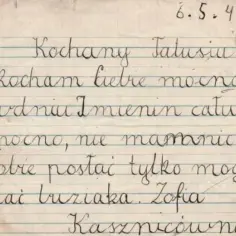 6.5.4
Kochany Tatusiu
kocham Ciebie mocno
Imienin cału
mocno, nie mam nic
posłać tylko mog
buziaka. Zofia
Kasznicówn